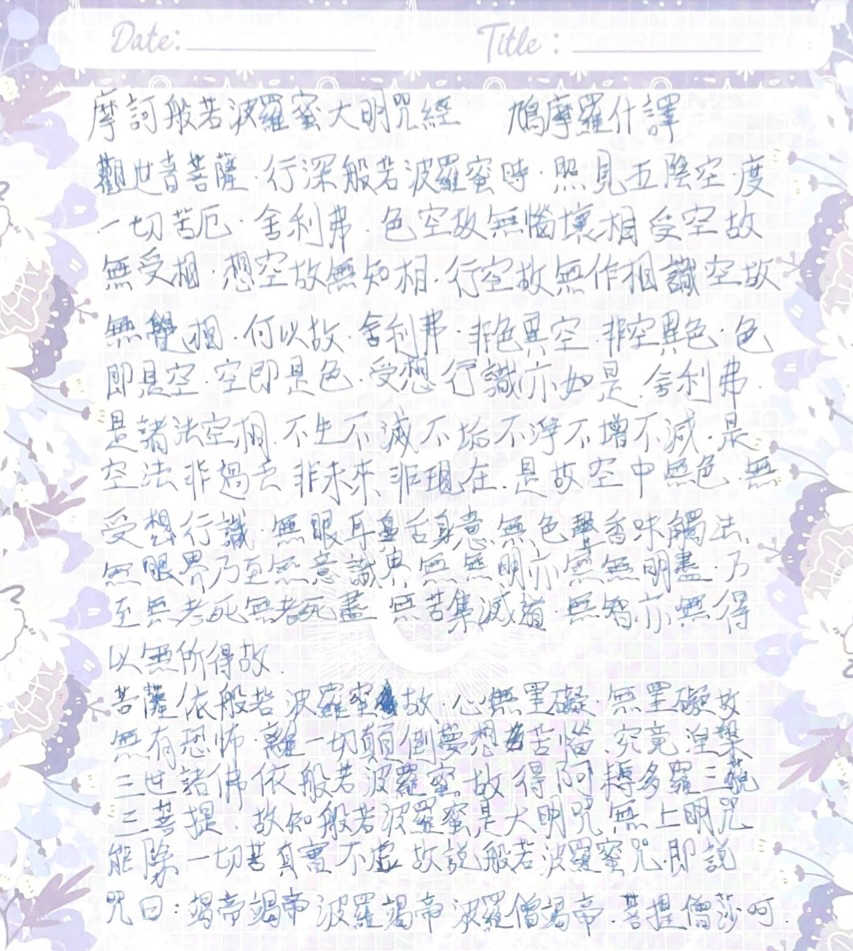 Date: Title :
摩訶般若波羅蜜大明咒經 鳩摩羅什譯
觀世音菩薩·行深般若波羅蜜時·照見五陰空·度
一切苦厄·舍利弗·色空故無惱壞相受空故
無受相·想空故無知相·行空故無作相識空故
無覺相·何以故·舍利弗·非色異空·非空異色·色
即是空·空即是色·受想行識亦如是·舍利弗·
是諸法空相·不生不滅不垢不淨不增不減·是
空法非過去非未來非現在·是故空中無色·無
受想行識·無眼耳鼻舌身意·無色聲香味觸法·
無眼界乃至無意識界無無明亦無無明盡·乃
至無老死無老死盡無苦集滅道·無智亦無得
以無所得故·
菩薩依般若波羅蜜故·心無罣礙·無罣礙故
無有恐怖·離一切顛倒夢想苦惱·究竟涅槃
三世諸佛依般若波羅蜜故得阿耨多羅三藐
三菩提·故知般若波羅蜜是大明咒無上明咒
能除一切苦真實不虛故說般若波羅蜜咒·即說
咒曰:竭帝竭帝波羅竭帝波羅僧竭帝·菩提僧莎呵·